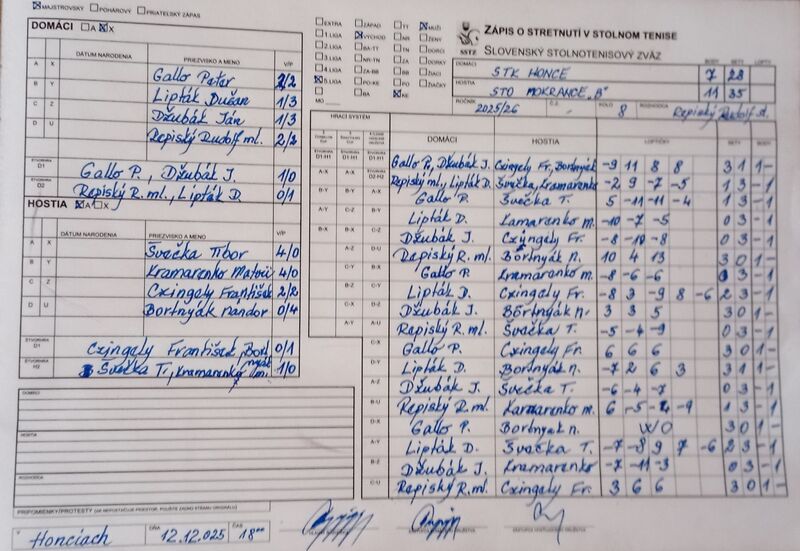 MAJSTROVSKÝ POHÁROVÝ PRIATEĽSKÝ ZÁPAS
DOMÁCI A X
DÁTUM NARODENIA PRIEZVISKO A MENO V/P
A X Gallo Peter 2/2
B Y Lipták Dušan 1/3
C Z Džubák Ján 1/3
D U Repiský Rudolf ml. 2/2
ŠTVORHRA D1 Gallo P., Džubák J. 1/0
ŠTVORHRA D2 Repiský R. ml., Lipták D. 0/1
HOSTIA A X
DÁTUM NARODENIA PRIEZVISKO A MENO V/P
A X Svečka Tibor 4/0
B Y Kramarenko Matvii 4/0
C Z Czingely František 2/2
D U Bortnyák Nandor 0/4
Czingely František Bortnyák 0/1
ŠTVORHRA H2 Svečka T., Kramarenko m. 1/0
DOMÁCI
HOSTIA
ROZHODCA
PRIPOMIENKY/PROTESTY
V Honciach DŇA 12.12.025 ČAS 18⁰⁰
EXTRA ZÁPAD TT MUŽI
1.LIGA VÝCHOD NR ŽENY
2.LIGA BA-TT TN DORCI
3.LIGA NR-TN ZA DORKY
4.LIGA ZA-BB BB ŽIACI
5.LIGA PO-KE PO ŽIAČKY
BA KE
MO
SSTZ
ZÁPIS O STRETNUTÍ V STOLNOM TENISE
SLOVENSKÝ STOLNOTENISOVÝ ZVÄZ
BODY SETY LOPTY
DOMÁCI STK HONCE 7 28
HOSTIA STO MOKRANCE "B" 11 35
ROČNÍK 2025/26 Č.Z. KOLO 8 ROZHODCA Repiský Rudolf st.
HRACÍ SYSTÉM
DOMÁCI HOSTIA LOPTIČKY SETY BODY
Gallo P., Džubák J. Czingely Fr., Bortnyák -9 11 8 8 3 1 1 -
Repiský ml., Lipták D. Svečka, Kramarenko -2 9 -7 -5 1 3 - 1
Gallo P. Svečka T. 5 -11 -11 -4 1 3 - 1
Lipták D. Kamarenko m. -10 -7 -5 0 3 - 1
Džubák J. Czyngely Fr. -8 -10 -8 0 3 - 1
Repiský R. ml. Bortnyák n. 10 4 13 3 0 1 -
Gallo P. Kramarenko m. -8 -6 -6 0 3 - 1
Lipták D. Czingely Fr. -8 3 -9 8 -6 2 3 - 1
Džubák J. Bortnyák n. 3 3 5 3 0 1 -
Repiský R. ml. Svečka T. -5 -4 -9 0 3 - 1
Gallo P. Czingely Fr. 6 6 6 3 0 1 -
Lipták D. Bortnyák n. -7 2 6 3 3 1 1 -
Džubák J. Svečka T. -6 -4 -7 0 3 - 1
Repiský R. ml. Karmarenko m. 6 -5 -9 1 3 - 1
Gallo P. Bortnyak n. W O 3 0 1 -
Lipták D. Svečka T. -7 -8 9 7 -6 2 3 - 1
Džubák J. Kramarenko -7 -11 -3 0 3 - 1
Repiský R. ml. Czingely Fr. 3 6 6 3 0 1 -